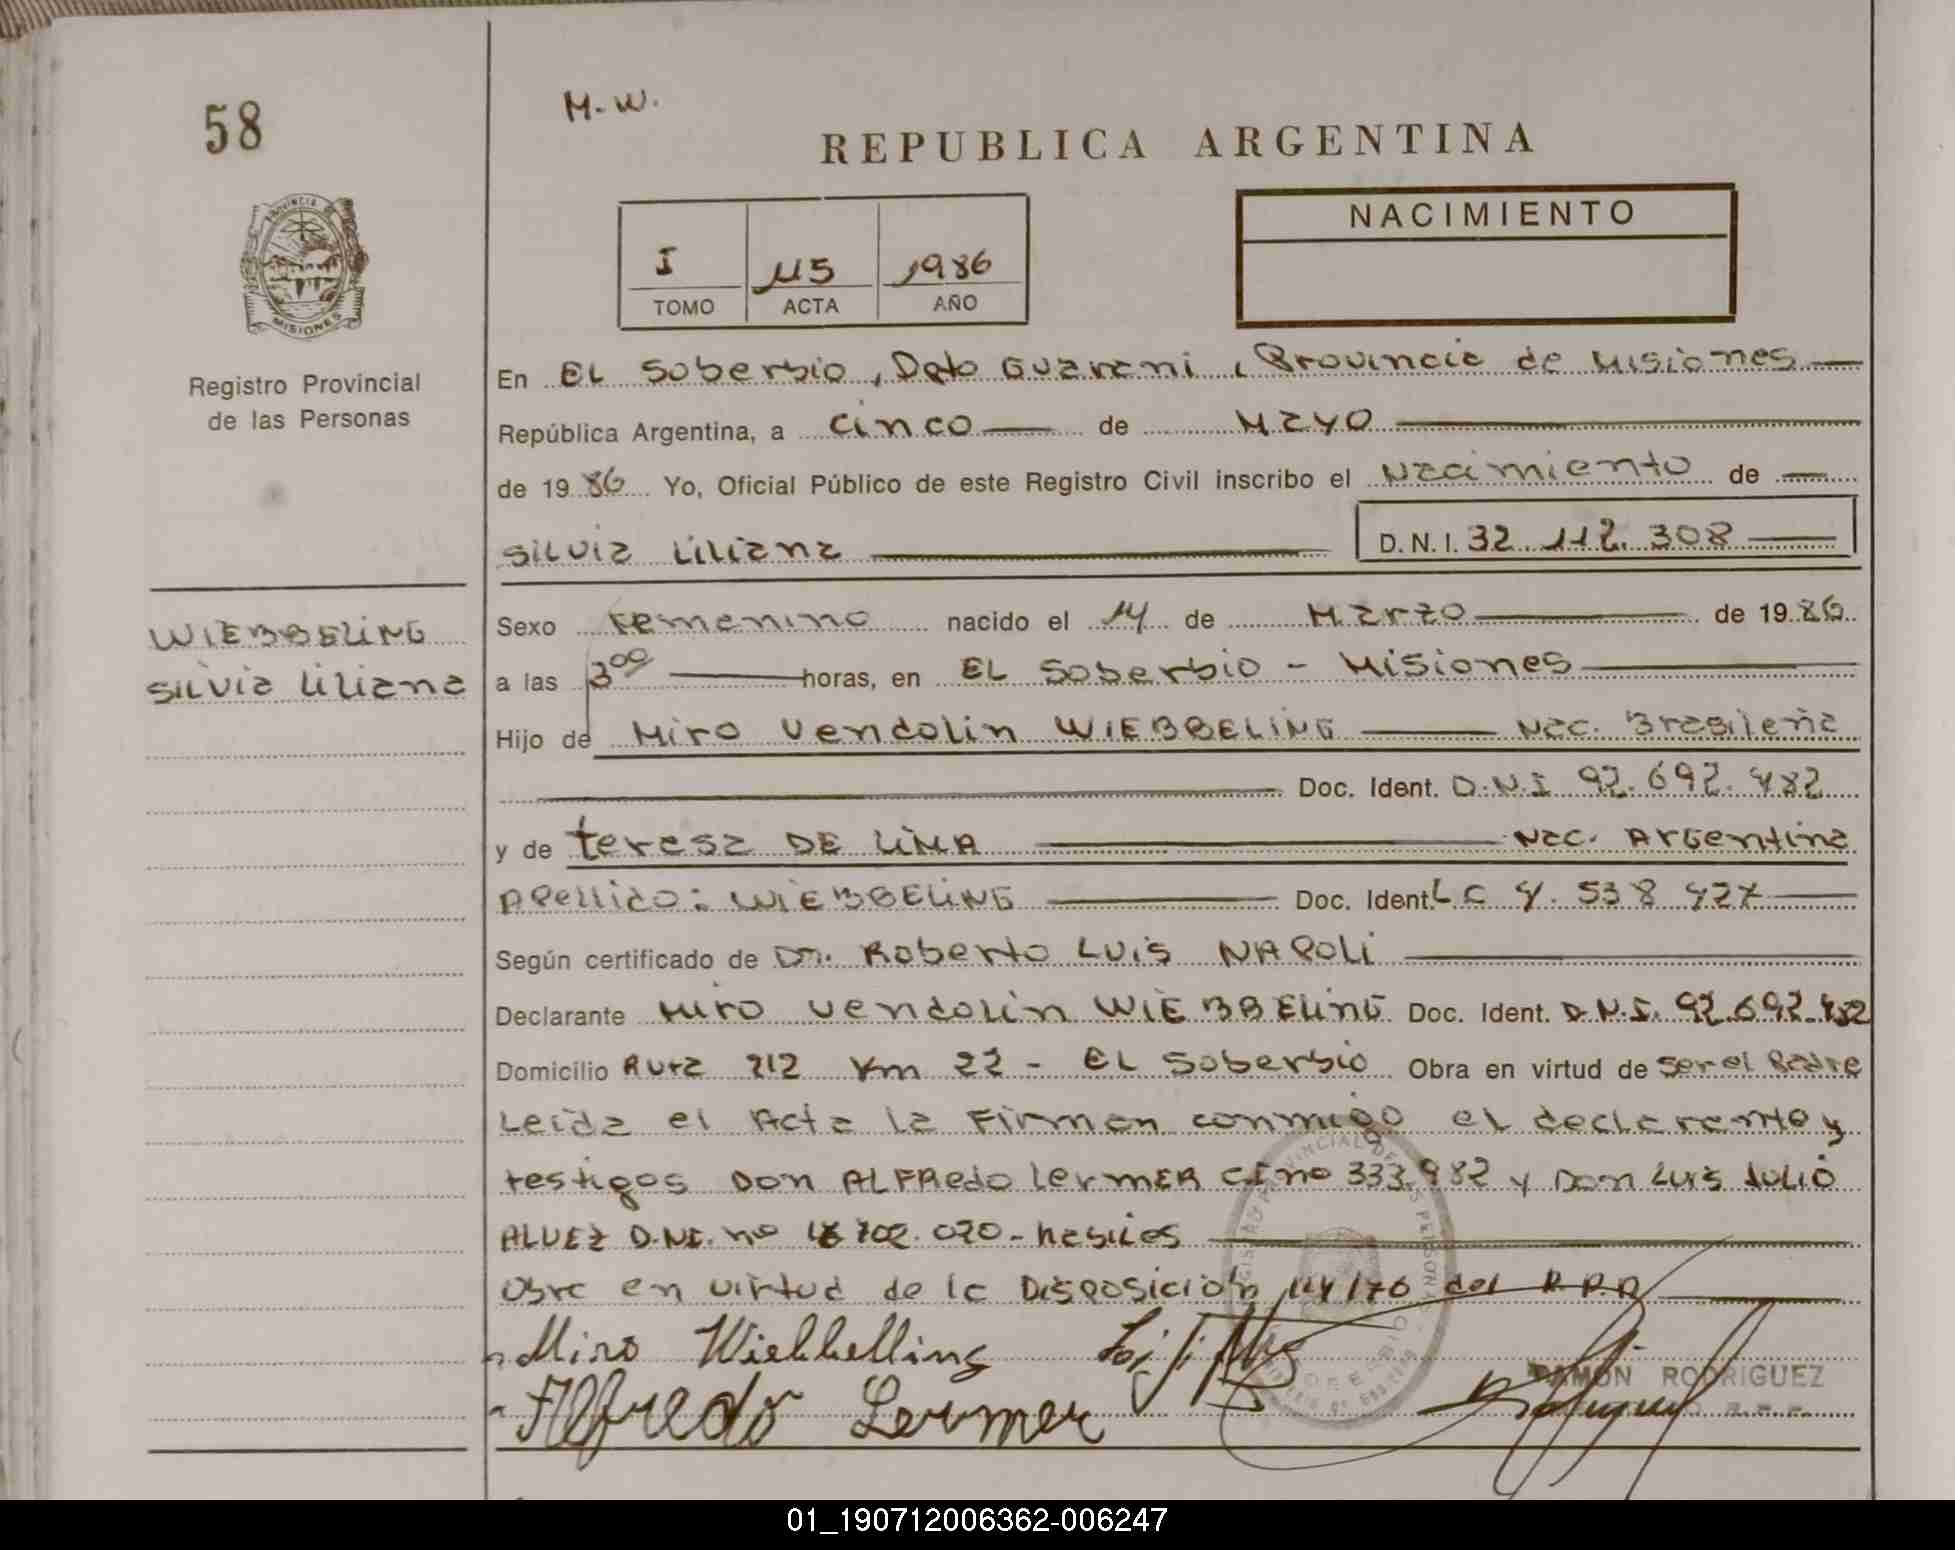 58
M-W.
REPUBLICA ARGENTINA
PROVINCIA DE
MISIONES
Registro Provincial
de las Personas
I 115 1986
TOMO ACTA AÑO
NACIMIENTO
En EL Soberbio, Dpto Guarani, Provincia de Misiones
República Argentina, a cinco de Mayo
de 1986 Yo, Oficial Público de este Registro Civil inscribo el Nacimiento de
Silvia Liliana D.N.I. 32.112.308
WIEBBELING
Silvia Liliana
Sexo Femenino nacido el 14 de Marzo de 1986
a las 3⁰⁰ horas, en EL Soberbio - Misiones
Hijo de Miro Vendolin WIEBBELING Nac. Brasileña
Doc. Ident. D.N.I 92.692.482
y de teresa DE LIMA Nac. Argentina
Apellido: WIEBBELING Doc. Ident. LC 4.538 427
Según certificado de Dr. Roberto Luis NAPOLI
Declarante Miro Vendolin WIEBBELING Doc. Ident. D.N.I. 92.692.482
Domicilio Ruta 212 Km 22 - EL Soberbio Obra en virtud de Ser el Padre
Leida el Acta la Firman conmigo el declarante y
testigos Don ALFREdo LermER CI no 333.982 y Don Luis Julio
ALVEZ D.NI. no 702.020-
Obra en virtud de la Disposición 114/76 del R.P.P
Miro Wiebbelling
Alfredo Lermer
RAMON RODRIGUEZ
01_190712006362-006247